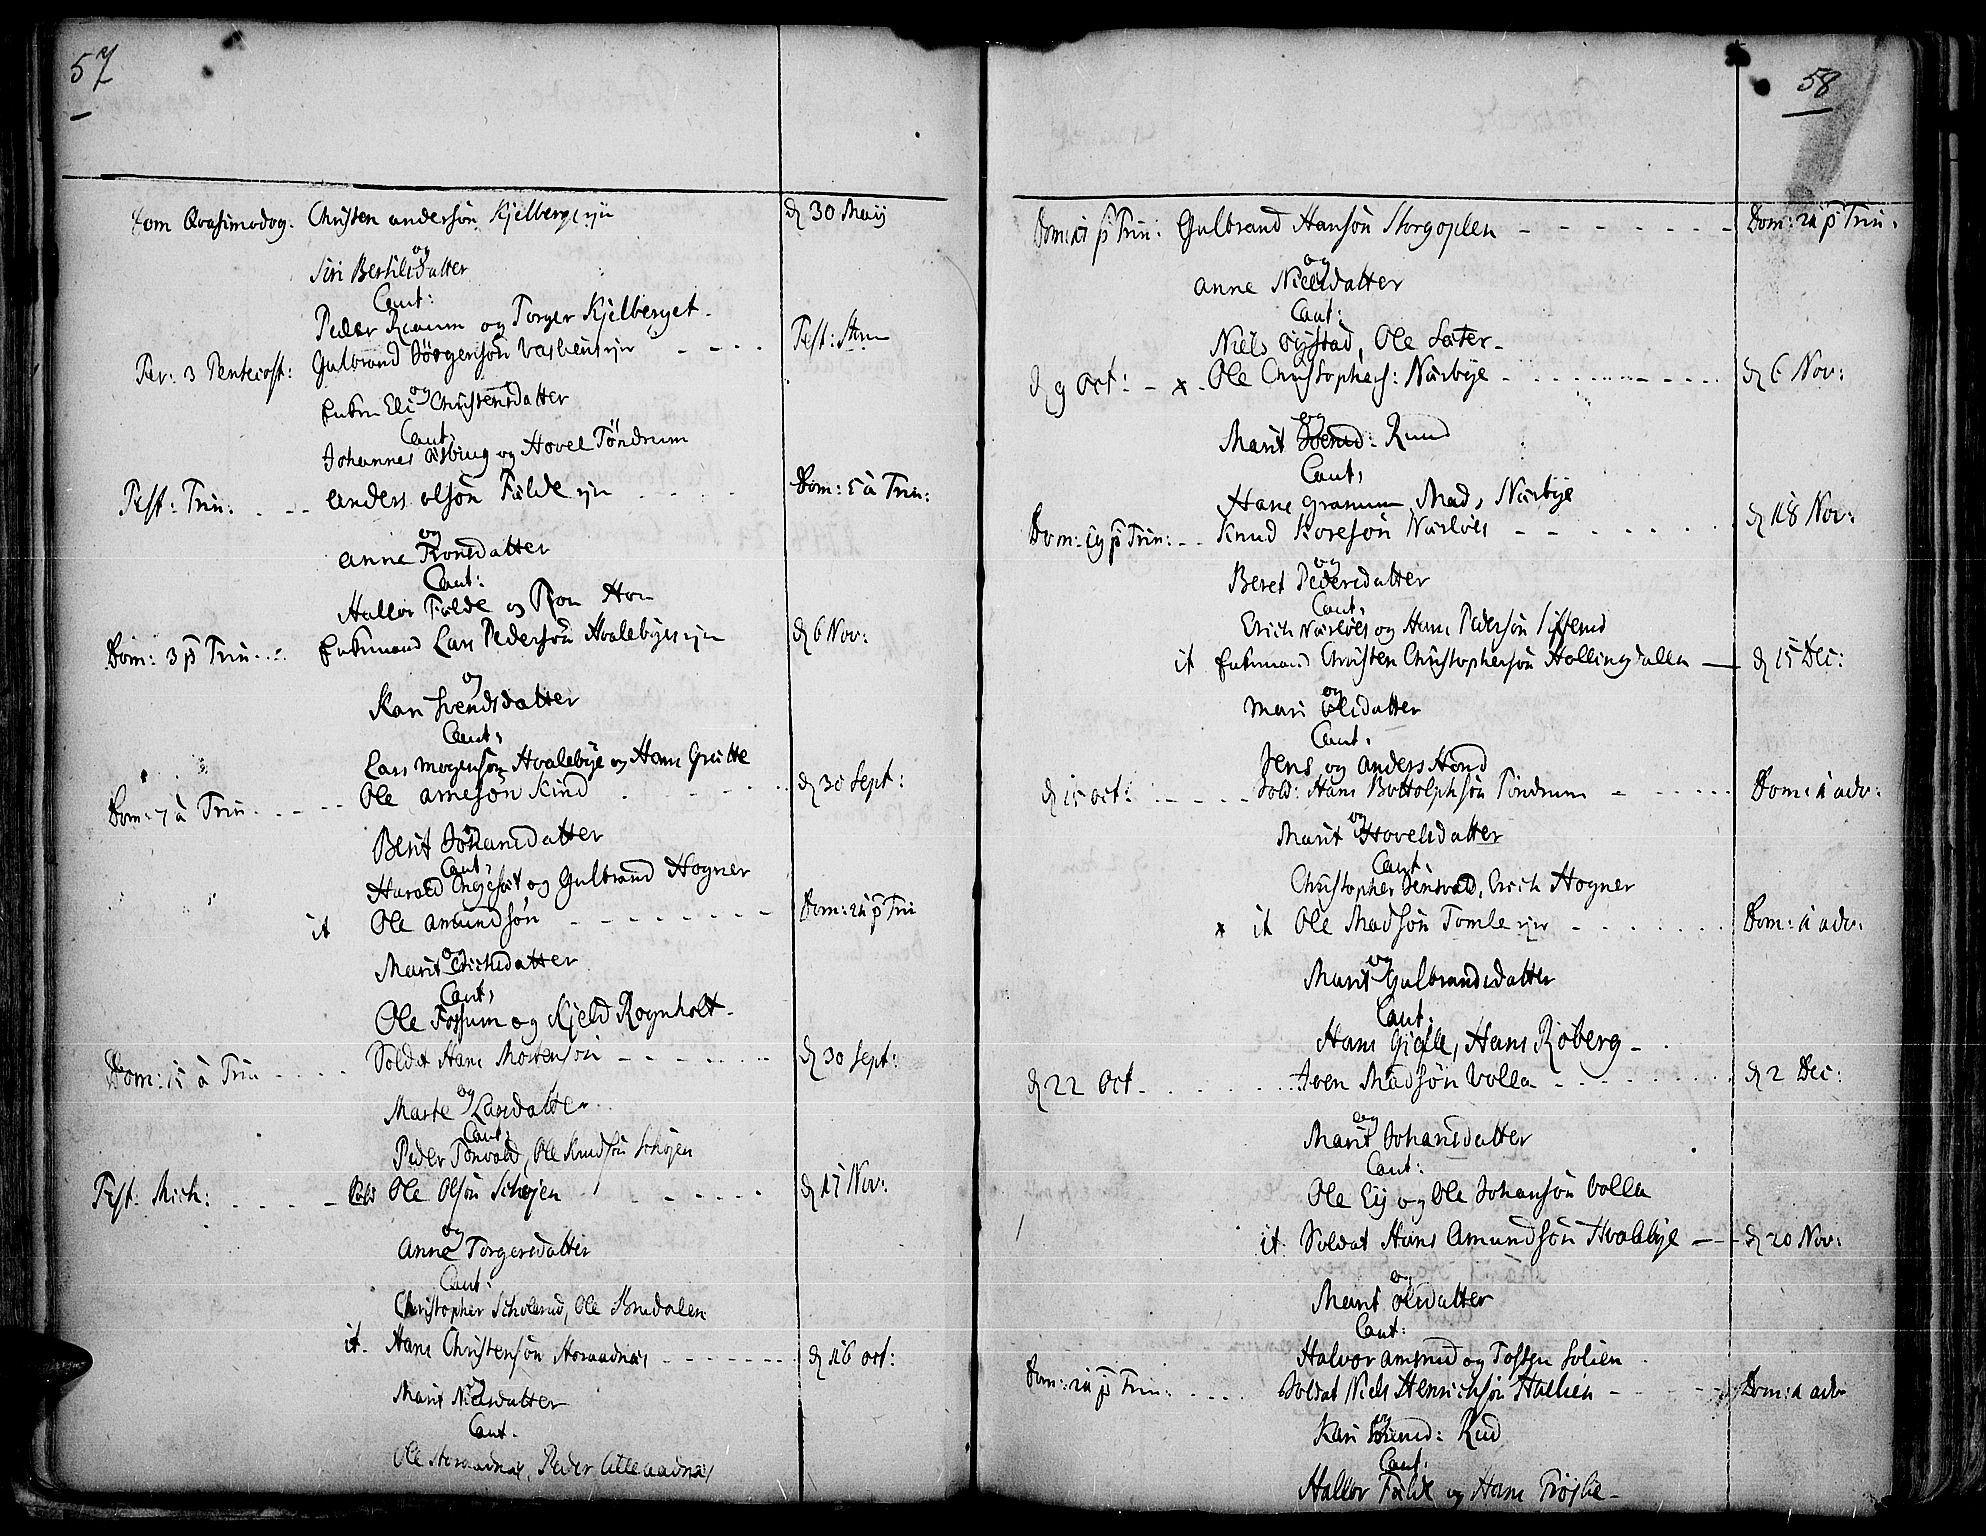 57
Dom Qvasimodog. Christen andersøn Kjelberg ejer d 30 Maij
og
Siri Bertilsdatter
Caut:
Peder Raum og Torger Kjelberget
Fer: 3 Pentecost: Gulbrand Jørgensøn ejer - - - Fest:
og
Enken Eli Christensdatter
Caut:
Johannes og Hovel Tøndrum
Fest: Trin: - - - anders olsøn Fælde ejer - - - Dom: 5 à Trin:
og
anne Ronsdatter
Caut:
Hallor Fælde og Ron Hon
Dom: 3 p Trin: - - Enkemand Lars Pedersøn Hvalebye ejer d 6 Nov:
og
Kari Svendsdatter
Caut:
Lars Mogensøn Hvalebye og Hans Grutte
Dom: 7 à Trin: - - - Ole arnesøn Kind - - - d 30 Sept:
Berit Johansdatter
Caut:
Harald og Gulbrand Hogner
it Ole amundsøn - - - Dom: 21 p Trin
og
Marit Erichsdatter
Caut:
Ole Fossum og Kjeld Rognholt
Dom: 15 à Trin - - - Soldat Hans Mortensøn - - - d 30 Sept:
og
Marte Larsdatter
Caut:
Peder Tonvold, Ole Knudsøn Schøjen
Fest. Mich: - - - Sold Ole Olsøn Schøjen - - - d 17 Nov:
og
Anne Torgersdatter
Caut:
Christopher Scholerud, Ole Brudalen
it. Hans Christensøn Horaadnæs - - - d 16 oct:
og
Marit Nielsdatter
Caut.
Ole Horaadnæs, Peder
58
Dom: 21 p Trin: Gulbrand Hansøn - - - Dom: 21 p Trin:
og
anne Nielsdatter
Caut:
Niels Øjstad, Ole Sæter
d 9 Oct: - x - Ole Christophers: Nærbye - - - d 6 Nov:
og
Marit Svend: Ruud
Caut:
Hans Granum Mads Nærbye
Dom: 19 p Trin: - - Knud Koresøn Nærløes - - - d 18 Nov:
og
Beret Pedersdatter
Caut:
Erich Nærløes og Hans Pedersøn
it Enkemand Christen Christophersøn Hollingdallen - d 15 Dec:
og
Mari Olsdatter
Caut:
Jens og anders Hond
d 15 oct: - - - Sold: Hans Bottolphsøn Tøndrum - - - Dom: 1 adv:
og
Marit Hovelsdatter
Caut:
Christopher Jensvold, Erich Hogner
x it Ole Madsøn Tomle ejer - - - Dom: 1 adv:
og
Marit Gulbrandsdatter
Caut:
Hans Gielle, Hans Røberg
d 22 Oct - - - Iven Madsøn Volla - - - d 2 Dec:
og
Marit Johansdatter
Caut:
Ole Eij og Ole Johansøn Volla
it. Soldat Hans Amundsøn Hvalebye - - d 20 Nov:
og
Marit Olsdatter
Caut:
Halvor amsrud og Tosten Solien
Dom: 21 p Trin: - - - Soldat Niels Henrichsøn Hallien - - - Dom: 1 adv
og
Kari Svend: Rud
Caut:
Hallor Fælde og Hans Frøslie